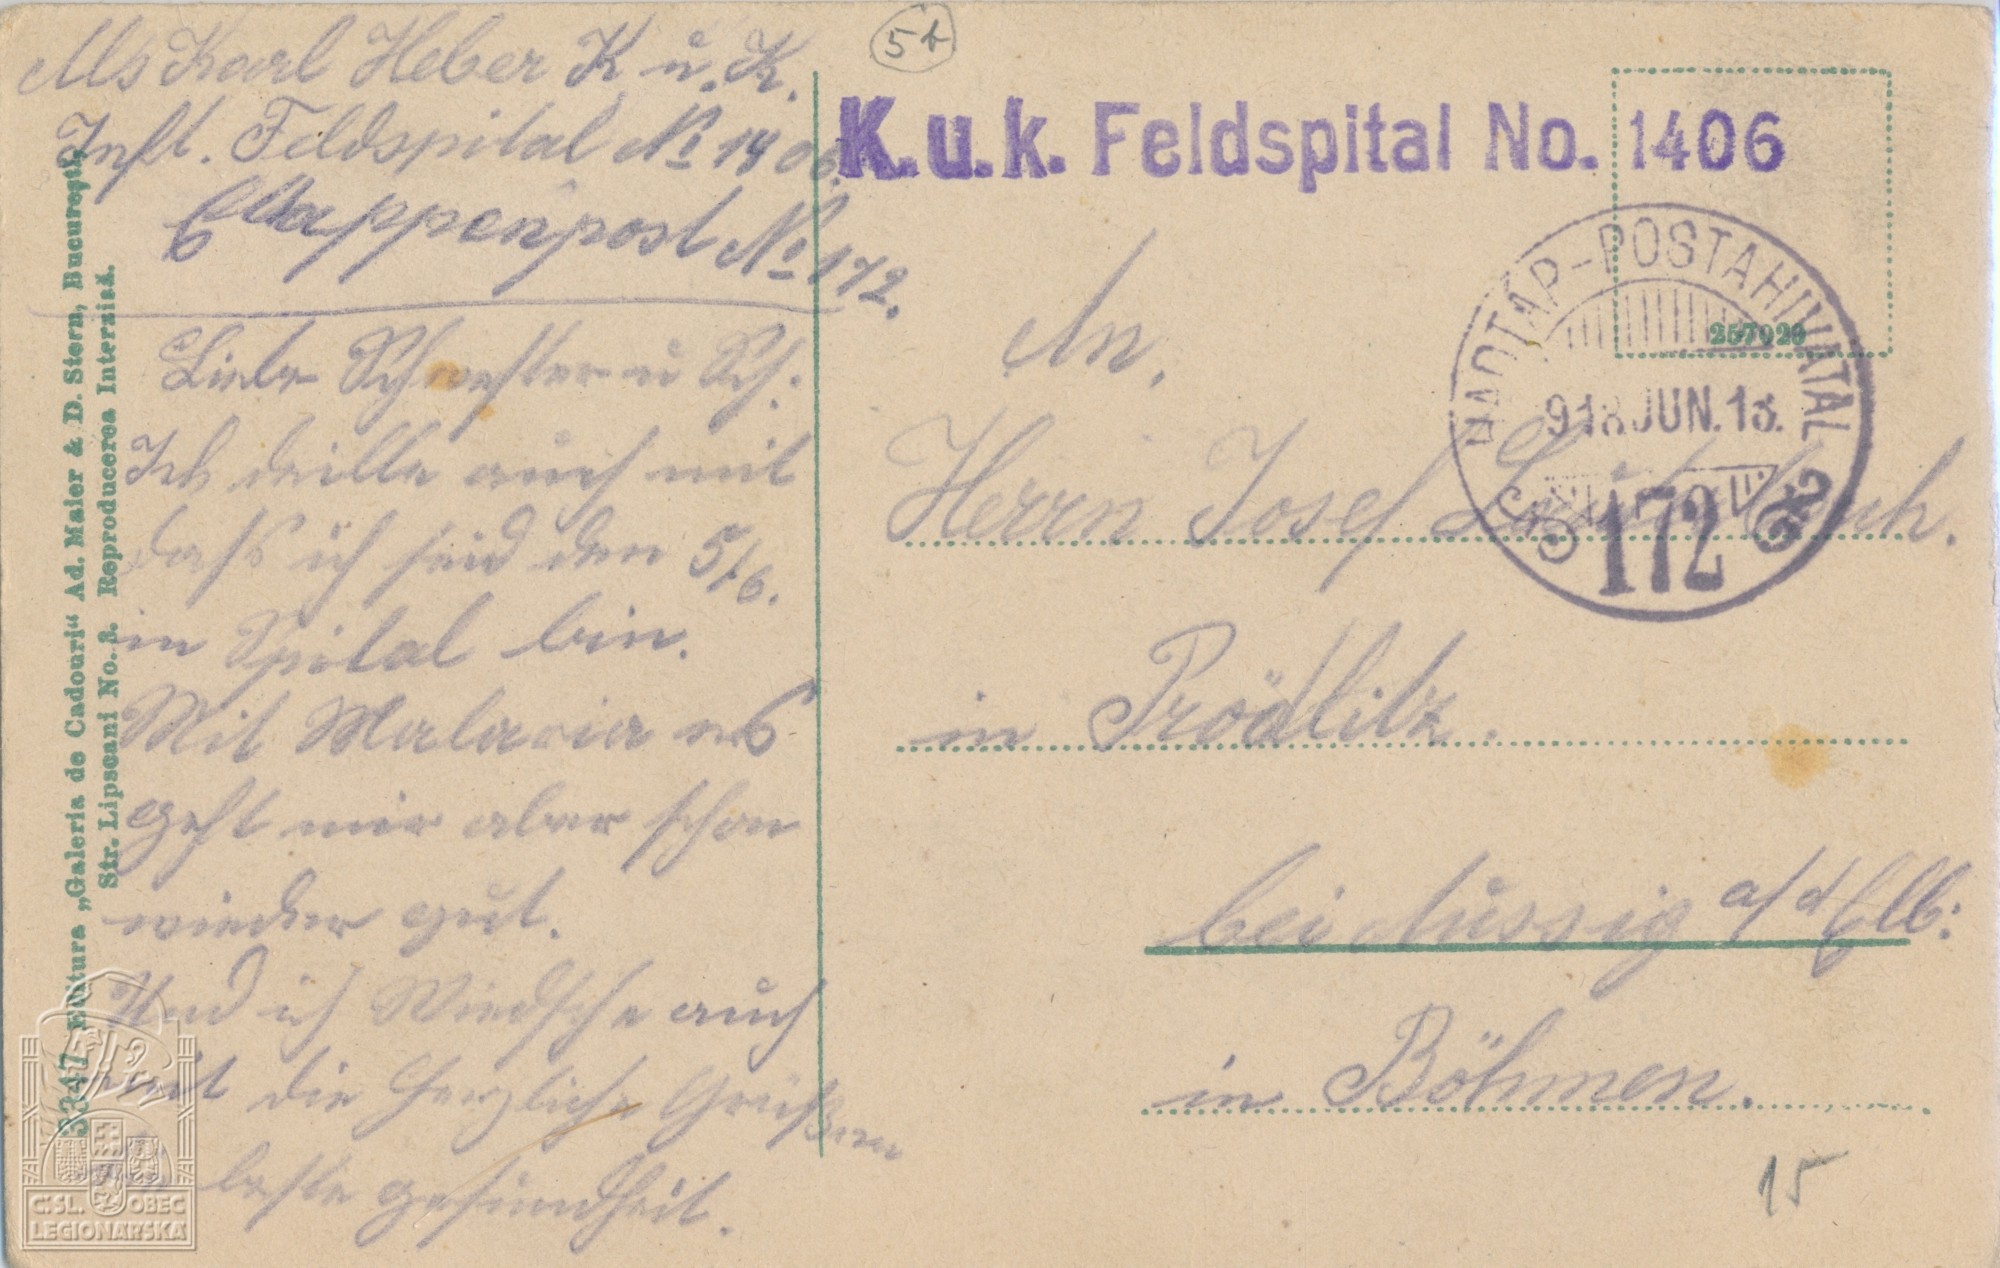 5 t
Abs Karl Heber K. u. K.
Inft. Feldspital No 1406.
Ettappenpost No 172.
Liebe Schwester u Sch.
Ich deille auch mit
dass ich seid den 5/6.
in Spital bin.
Mit Malaria es
geht mir aber schon
wieder gut.
Und ich Windsche auch
mit die herzliche Grüßen
beste gesundheit.
K.u.k. Feldspital No. 1406
HADTÁP-POSTAHIVATAL
918 JUN. 13.
172
257020
An.
Herrn Josef
in Prödlitz.
bei Aussig a/d Elb:
in Böhmen.
15
33347 Editura „Galeria de Cadouri“ Ad. Maier & D. Stern, Bucureşti,
Str. Lipscani No. 3. Reproducerea Interzisă.
ČSL. OBEC
LEGIONÁŘSKÁ